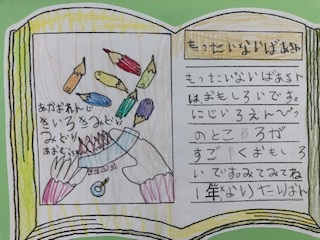 もったいないばあさん
もったいないばあさん
はおもしろいです。
にじいろえんぴつ
のところが
すごくおもしろ
いです。みてみてね
1年
あかおれんじ
きいろきみどり
みどり